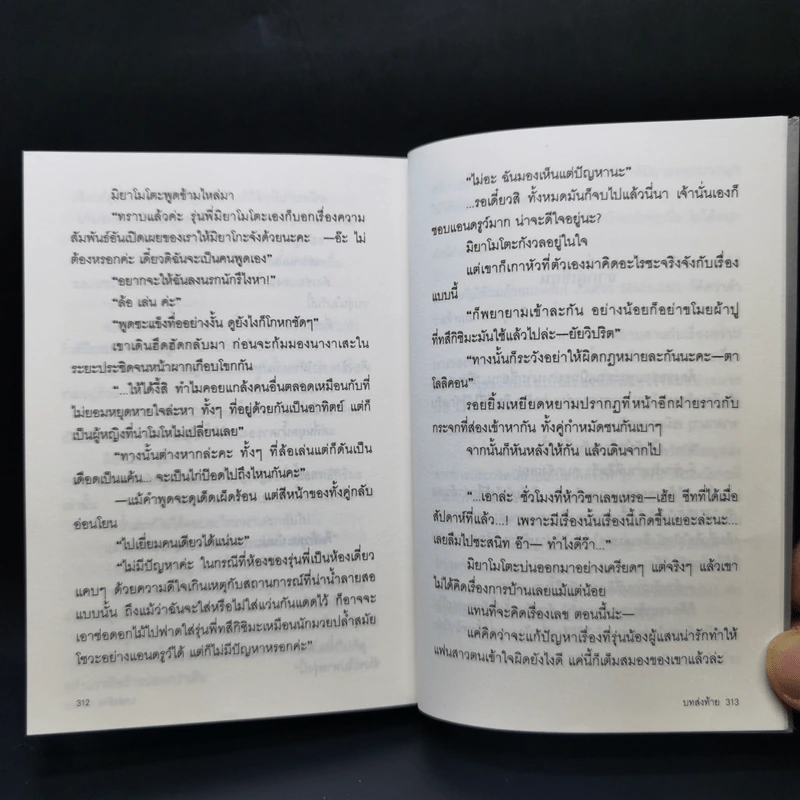 มิยาโมโตะพูดข้ามไหล่มา
"ทราบแล้วค่ะ รุ่นพี่มิยาโมโตะเองก็บอกเรื่องความ
สัมพันธ์อันเปิดเผยของเราให้มิยาโกะจังด้วยนะคะ —อ๊ะ ไม่
ต้องหรอกค่ะ เดี๋ยวดิฉันจะเป็นคนพูดเอง"
"อยากจะให้ฉันลงนรกนักรึไงหา!"
"ล้อ เล่น ค่ะ"
"พูดซะแข็งทื่ออย่างงั้น ดูยังไงก็โกหกชัดๆ"
เขาเดินฮึดฮัดกลับมา ก่อนจะก้มมองนางาเสะใน
ระยะประชิดจนหน้าผากเกือบโขกกัน
"...ให้ได้งี้สิ ทำไมคอยแกล้งคนอื่นตลอดเหมือนกับที่
ไม่ยอมหยุดหายใจล่ะหา ทั้งๆ ที่อยู่ด้วยกันเป็นอาทิตย์ แต่ก็
เป็นผู้หญิงที่น่าโมโหไม่เปลี่ยนเลย"
"ทางนั้นต่างหากล่ะคะ ทั้งๆ ที่ล้อเล่นแต่ก็ดันเป็น
เดือดเป็นแค้น... จะเป็นไก่ป๊อดไปถึงไหนกันคะ"
—แม้คำพูดจะดุเด็ดเผ็ดร้อน แต่สีหน้าของทั้งคู่กลับ
อ่อนโยน
"ไปเยี่ยมคนเดียวได้แน่นะ"
"ไม่มีปัญหาค่ะ ในกรณีที่ห้องของรุ่นพี่เป็นห้องเดี่ยว
แคบๆ ด้วยความดีใจเกินเหตุกับสถานการณ์ที่น่าน้ำลายสอ
แบบนั้น ถึงแม้ว่าฉันจะใส่หรือไม่ใส่แว่นกันแดดไว้ ก็อาจจะ
เอาช่อดอกไม้ไปฟาดใส่รุ่นพี่ทสึกิชิมะเหมือนนักมวยปล้ำสมัย
โชวะอย่างแอนดรูว์ได้ แต่ก็ไม่มีปัญหาหรอกค่ะ"
312
"ไม่อะ ฉันมองเห็นแต่ปัญหานะ"
...รอเดี๋ยวสิ ทั้งหมดมันก็จบไปแล้วนี่นา เจ้านั่นเองก็
ชอบแอนดรูว์มาก น่าจะดีใจอยู่นะ?
มิยาโมโตะกังวลอยู่ในใจ
แต่เขาก็เกาหัวที่ตัวเองมาคิดอะไรซะจริงจังกับเรื่อง
แบบนี้
"ก็พยายามเข้าละกัน อย่างน้อยก็อย่าขโมยผ้าปู
ที่ทสึกิชิมะมันใช้แล้วไปล่ะ—ยัยวิปริต"
"ทางนั้นก็ระวังอย่าให้ผิดกฎหมายละกันนะคะ—ตา
โลลิคอน"
รอยยิ้มเหยียดหยามปรากฏที่หน้าอีกฝ่ายราวกับ
กระจกที่ส่องเข้าหากัน ทั้งคู่กำหมัดชนกันเบาๆ
จากนั้นก็หันหลังให้กัน แล้วเดินจากไป
"...เอาล่ะ ชั่วโมงที่ห้าวิชาเลขเหรอ—เฮ้ย ชีทที่ได้เมื่อ
สัปดาห์ที่แล้ว...! เพราะมีเรื่องนั้นเรื่องนี้เกิดขึ้นเยอะล่ะนะ...
เลยลืมไปซะสนิท อ๊า— ทำไงดีว้า..."
มิยาโมโตะบ่นออกมาอย่างเครียดๆ แต่จริงๆ แล้วเขา
ไม่ได้คิดเรื่องการบ้านเลยแม้แต่น้อย
แทนที่จะคิดเรื่องเลข ตอนนี้น่ะ—
แค่คิดว่าจะแก้ปัญหาเรื่องที่รุ่นน้องผู้แสนน่ารักทำให้
แฟนสาวตนเข้าใจผิดยังไงดี แค่นี้ก็เต็มสมองของเขาแล้วล่ะ
บทส่งท้าย 313